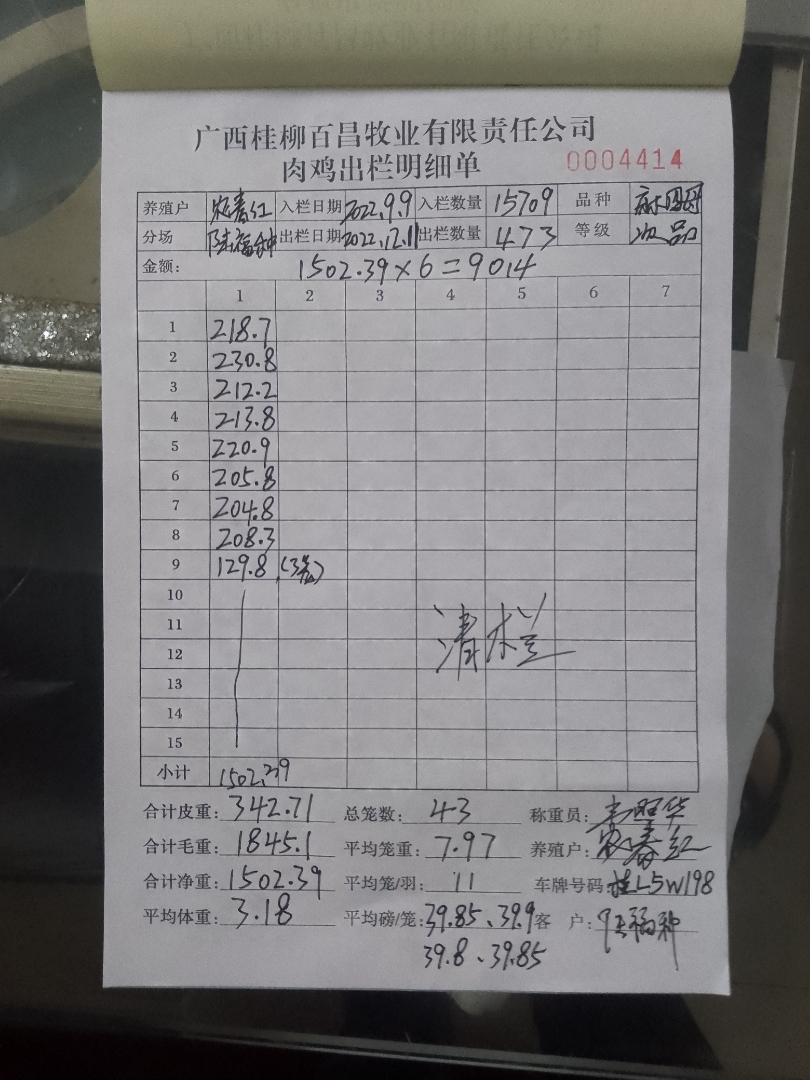 广西桂柳百昌牧业有限责任公司
肉鸡出栏明细单 0004414
养殖户 春红 入栏日期 2022.9.9 入栏数量 15709 品种
分场 陆福钟 出栏日期 2022.12.11 出栏数量 473 等级 次品
金额: 1502.39×6=9014
1 2 3 4 5 6 7
1 218.7
2 230.8
3 212.2
4 213.8
5 220.9
6 205.8
7 204.8
8 208.3
9 129.8 (3笼)
10
11 清栏
12
13
14
15
小计 1502.39
合计皮重: 342.71 总笼数: 43 称重员:
合计毛重: 1845.1 平均笼重: 7.97 养殖户: 春红
合计净重: 1502.39 平均笼/羽: 11 车牌号码: 桂L5W198
平均体重: 3.18 平均磅/笼: 39.85、39.9 客 户:
39.8、39.85